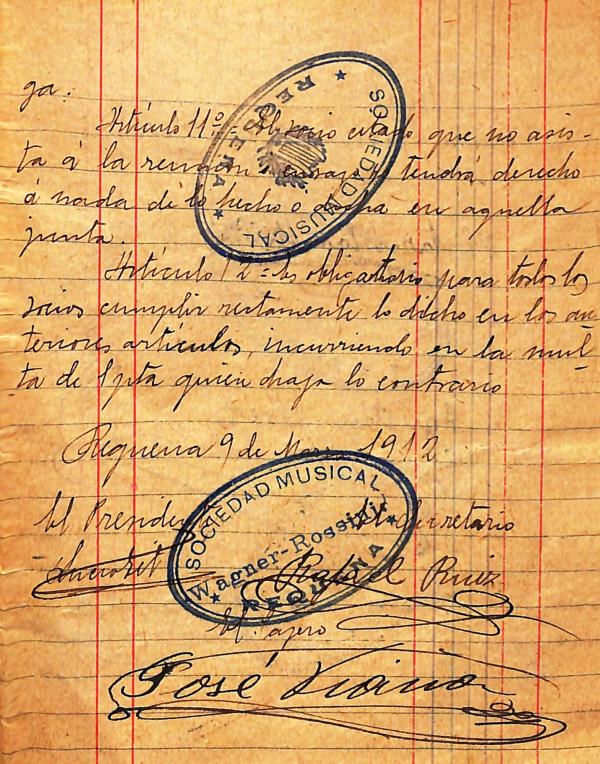 ga.
Artículo 11º = Al socio citado que no asis-
ta á la reunión tendrá derecho
á nada de lo hecho o en aquella
junta.
Artículo 12 = Es obligatorio para todos los
socios cumplir rectamente lo dicho en los an-
teriores artículos, incurriendo en la mul-
ta de 1 pta quien haga lo contrario
Requena 9 de 1912.
El Presidente El Secretario
Rafael Ruiz
El
José Viana
SOCIEDAD MUSICAL
REQUENA
SOCIEDAD MUSICAL
Wagner-Rossini
REQUENA